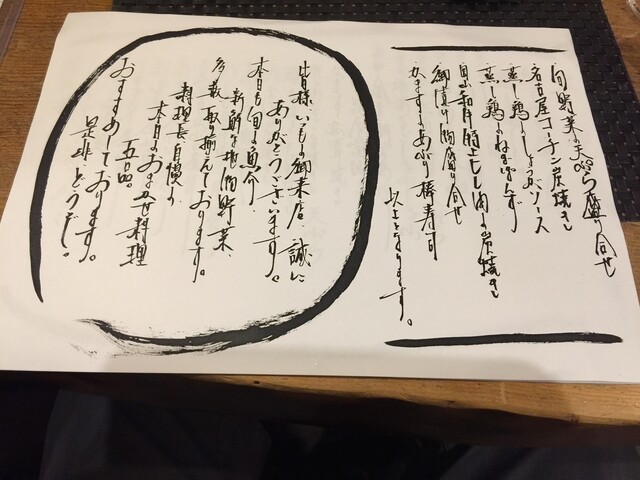 旬野菜の天ぷら盛り合せ
名古屋コーチン炭焼き
蒸し鶏のしょうがソース
蒸し鶏のねぎぽんず
黒毛和牛時土もも肉の炭焼き
御漬け物盛り合せ
かますのあぶり棒寿司
以上となります。
皆様いつも御来店、誠に
ありがとうございます。
本日も旬の魚介、
新鮮な地物野菜、
多数取り揃えております。
料理長自慢の
本日のおまかせ料理
五品。
おすすめしております。
是非どうぞ。